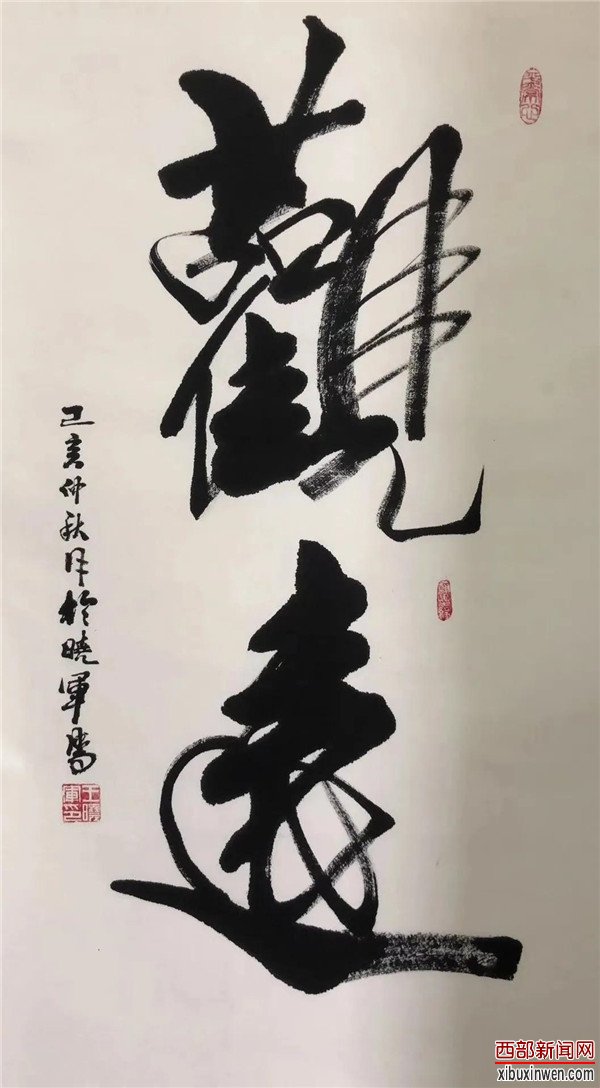 觀遠
己亥仲秋月於曉軍书
王曉軍印
西部新闻网
xibuxinwen.com